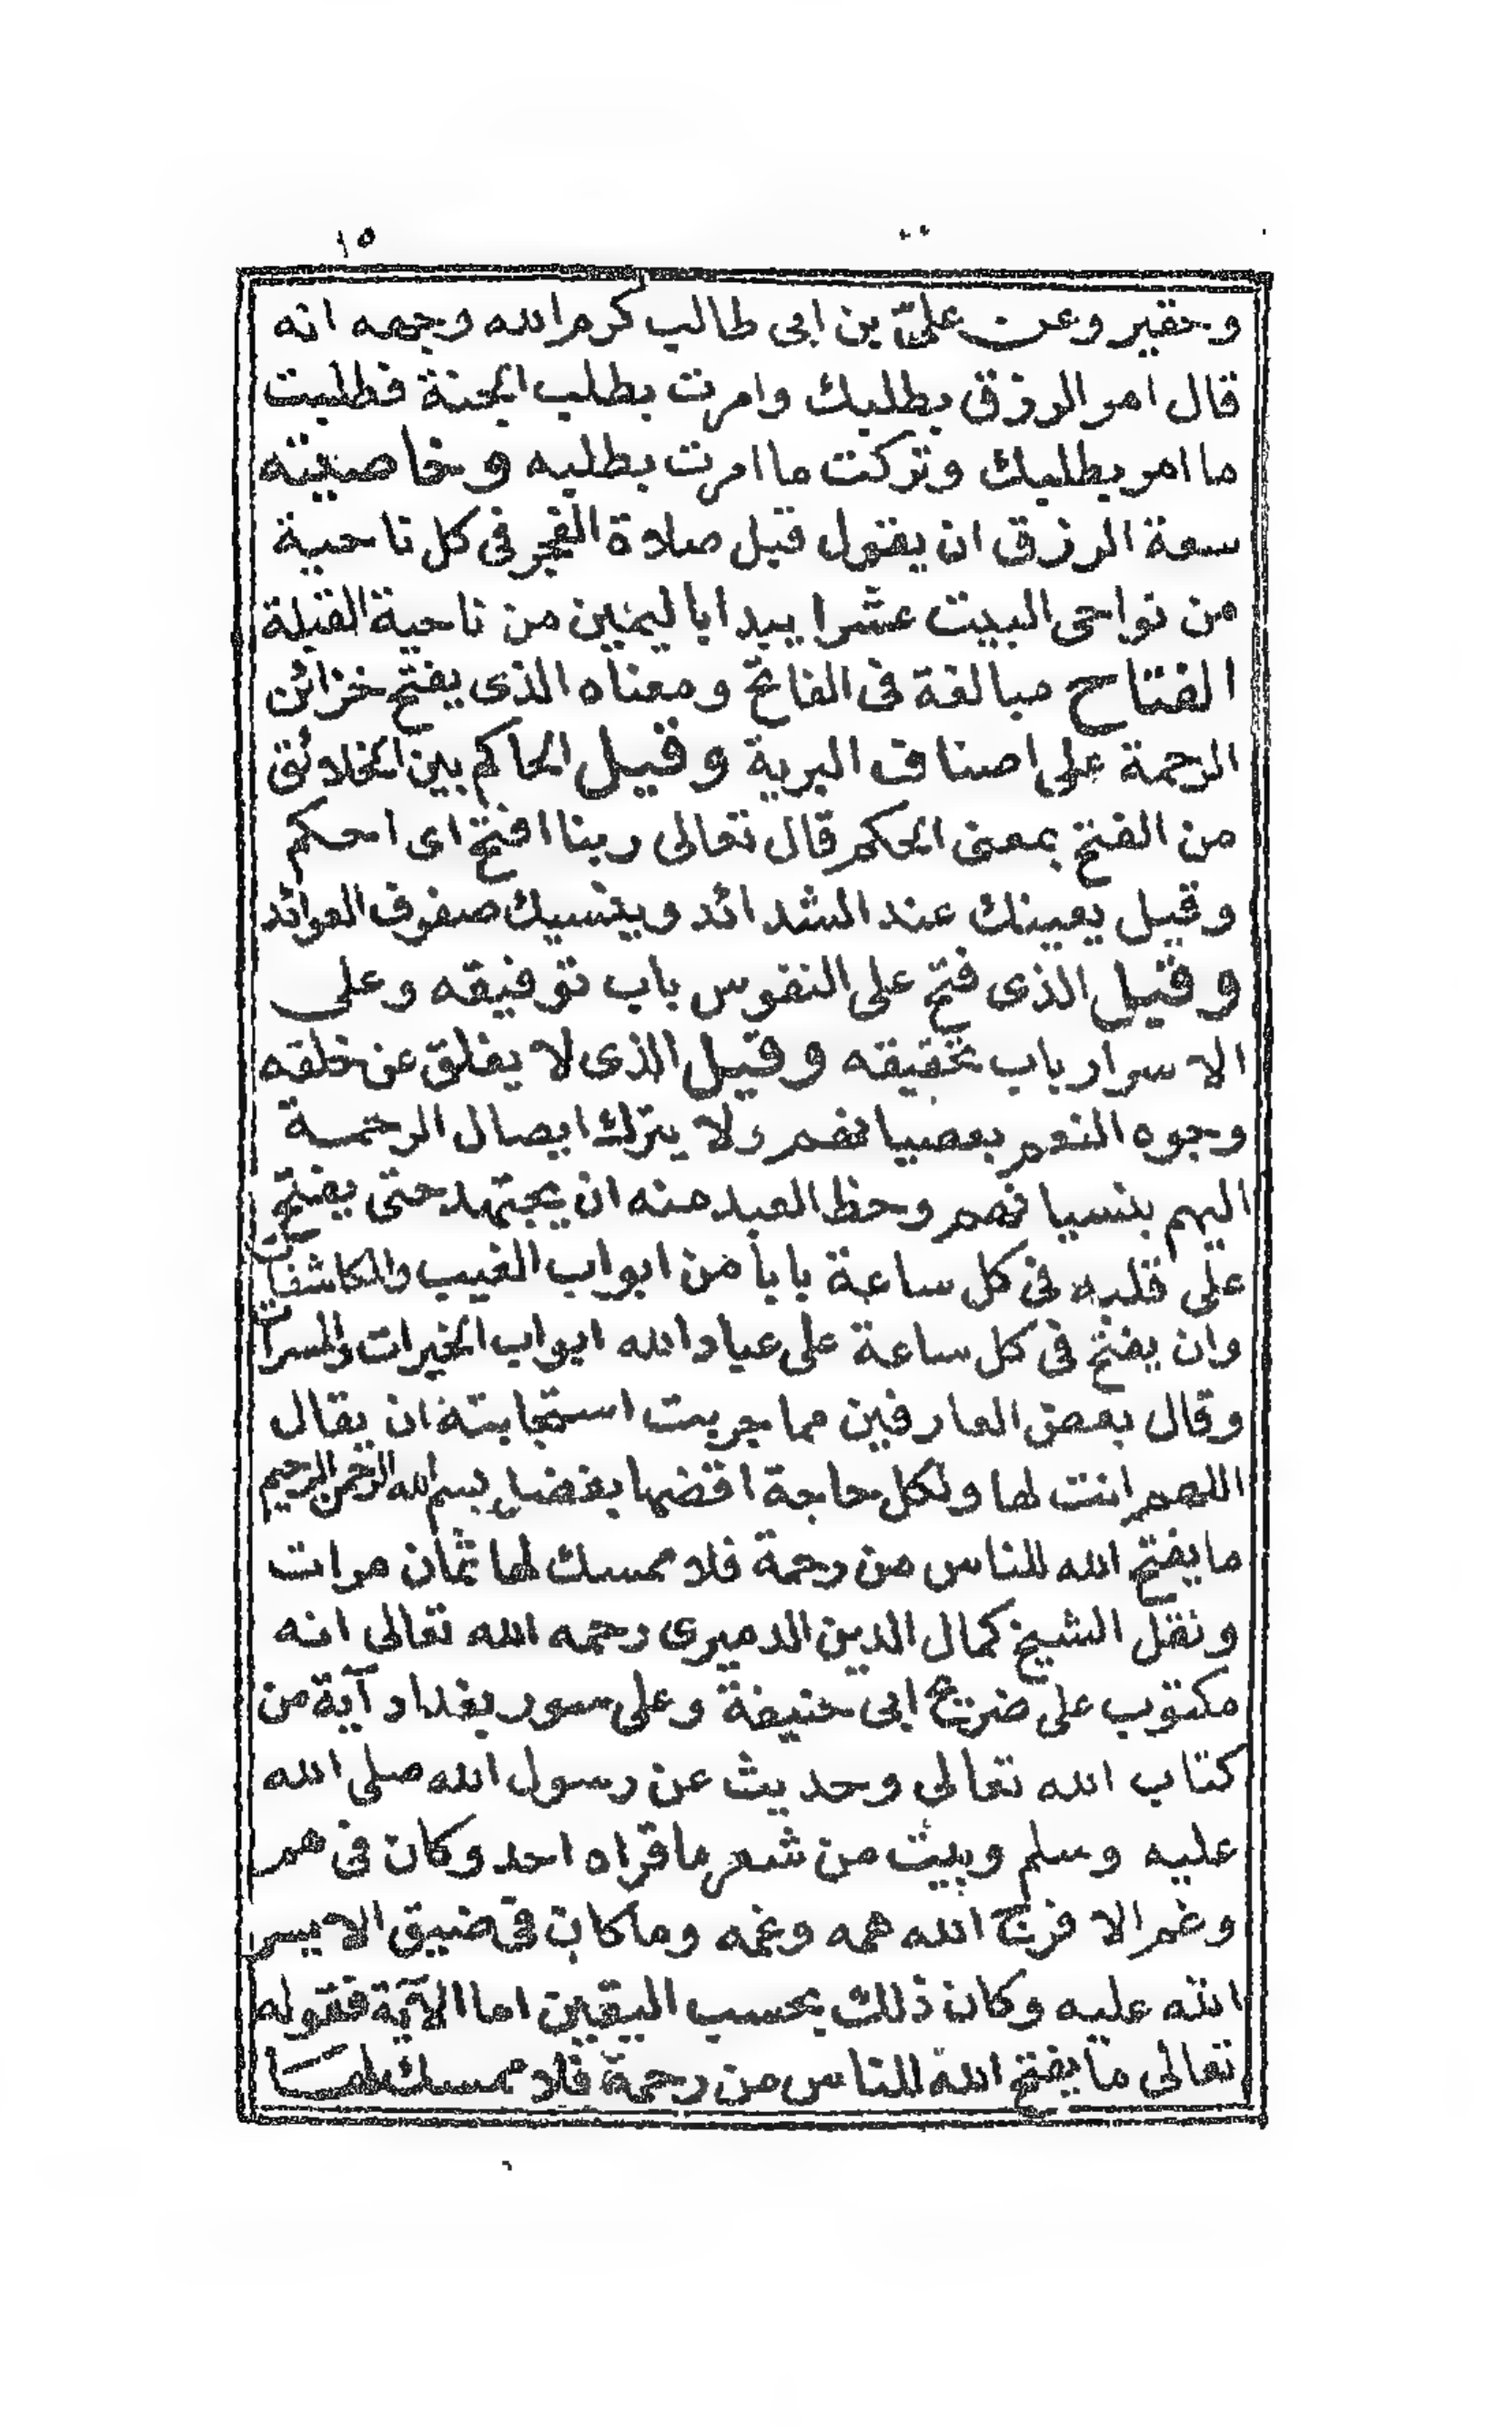 ١٥
وحقير وعن علىّ بن ابى طالب كرم الله وجهه انه
قال امر الرزق بطلبك وامرت بطلب الجنة فطلبت
ما امر بطلبك وتركت ما امرت بطلبه وخاصيته
سعة الرزق ان يقول قبل صلاة الفجر فى كل ناحية
من نواحى البيت عشرا يبدا باليمين من ناحية القبلة
الفتاح مبالغة فى الفاتح ومعناه الذى يفتح خزائن
الرحمة على اصناف البرية وقيل الحاكم بين الخلائق
من الفتح بمعنى الحكم قال تعالى ربنا افتح اى احكم
وقيل يعينك عند الشدائد وينسيك صفوف العوائد
وقيل الذى فتح على النفوس باب توفيقه وعلى
الاسرار باب تحقيقه وقيل الذى لا يغلق عن خلقه
وجوه النعم بعصيانهم ولا يترك ايصال الرحمة
اليهم بنسيانهم وحظ العبد منه ان يجتهد حتى يفتح
على قلبه فى كل ساعة بابا من ابواب الغيب والمكاشفات
وان يفتح فى كل ساعة على عباد الله ابواب الخيرات والمسرات
وقال بعض العارفين مما جربت استجابته ان يقال
اللهم انت لها ولكل حاجة اقضها بفضل بسم الله الرحمن الرحيم
ما يفتح الله للناس من رحمة فلا ممسك لها ثمان مرات
ونقل الشيخ كمال الدين الدميرى رحمه الله تعالى انه
مكتوب على ضريح ابى حنيفة وعلى سور بغداد آية من
كتاب الله تعالى وحديث عن رسول الله صلى الله
عليه وسلم وبيت من شعر ما قراه احد وكان فى هم
وغم الا فرج الله همه وغمه وما كان فى ضيق الا يسر
الله عليه وكان ذلك بحسب اليقين اما الآية فقوله
تعالى ما يفتح الله للناس من رحمة فلا ممسك لها